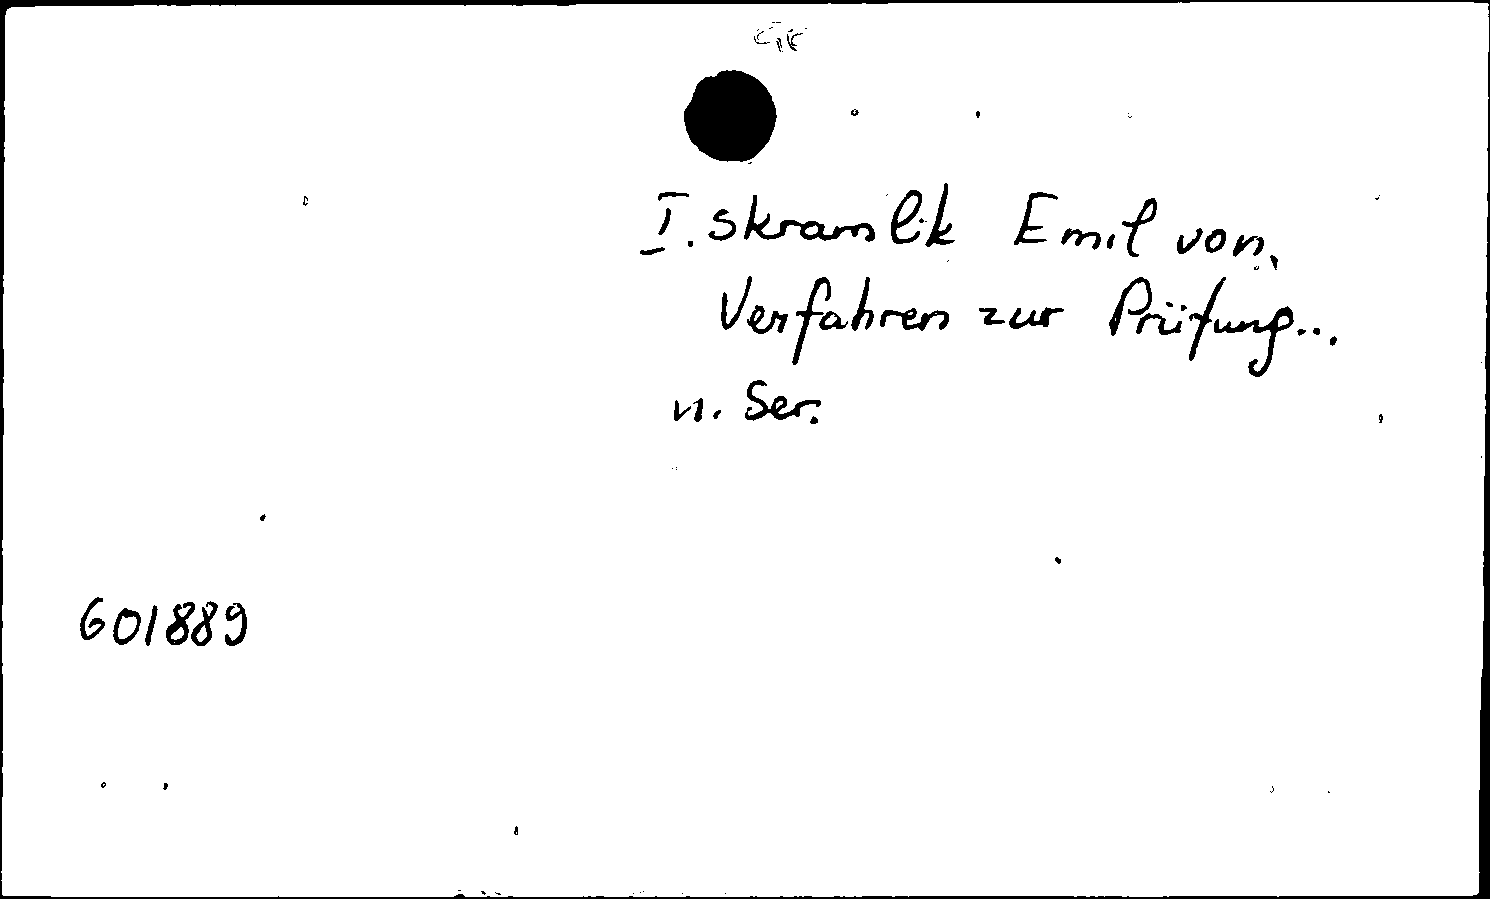 I. Skramlik Emil von.
Verfahren zur Prüfung...
n. Ser.
601889